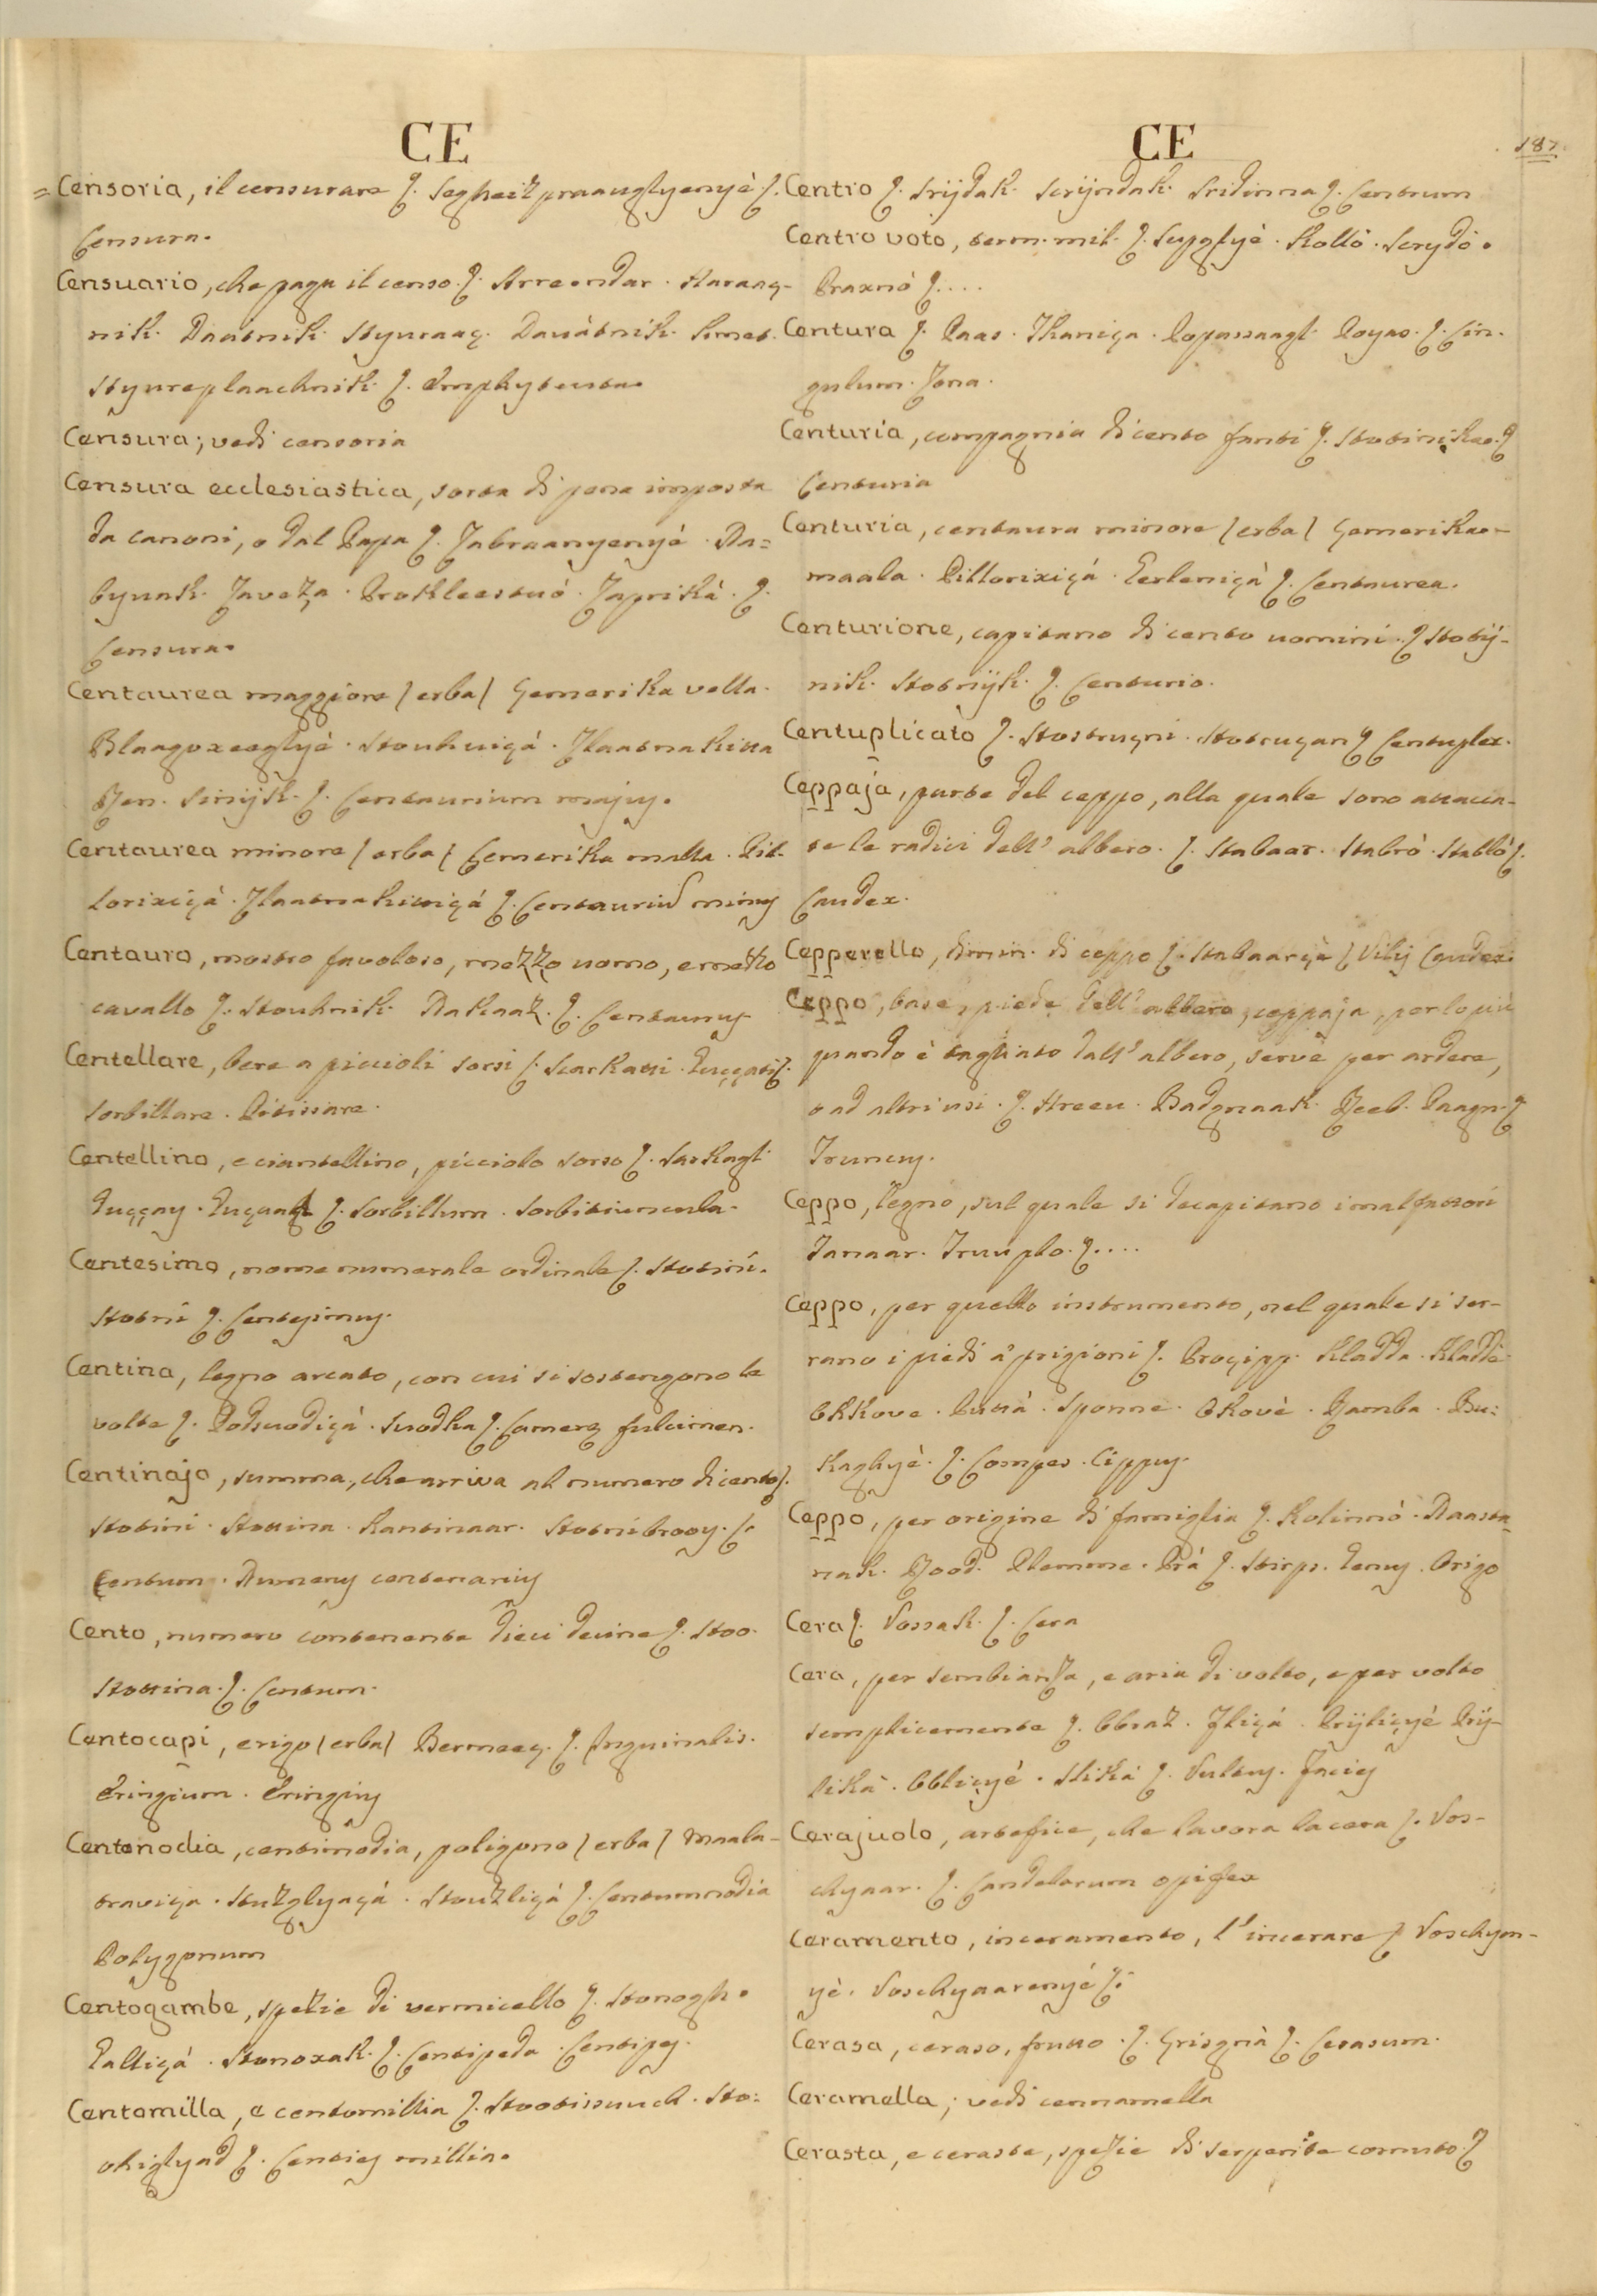 CE
Censoria, il censurare ſ. Segheiz praauglyenyè ſ.
Censura.
Censuario, che paga il censo. ſ. Arrendar. Haraaç-
nik. Daatnik. Styuraaç. Davàtnik. Kmet.
Styureplaachnik. ſ. Emphyteuta.
Censura; vedi censoria
Censura ecclesiastica, sorta di pena imposta
da canoni, o dal Papa ſ. Zabraanyenyé. Na=
byunk. Zaveza. Prokleestvó. Zapriká. ſ.
Censura.
Centaurea maggiore / erba / Gemerika vella.
Blaagoxeeglyè. Stouhuiçá. Zlaatnakitta
Ren. Sinijk. ſ. Centaurium majus.
Centaurea minore / erba / Gemerika malla. Pit-
lorixiçá. Zlaatnakitiçá ſ. Centauriū minus
Centauro, mostro favoloso, mezzo uomo, e mezzo
cavallo ſ. Stouhnik. Nakaaz. ſ. Centaurus
Centellare, bere a piccioli sorsi ſ. Sarkatti. Guççati ſ.
Sorbillare. Pitissare.
Centellino, e ciantellino, picciolo sorso ſ. Sarkagl.
Guççay. Guçaagl ſ. Sorbillum. Sorbitiuncula.
Centesimo, nome numerale ordinale ſ. Stotini.
Stotni ſ. Centesimus.
Centina, legno arcato, con cui si sostengono le
volte ſ. Podsvodiçá. Svodka ſ. Cameræ fulcimen.
Centinajo, summa, che arriva al numero di cento ſ.
Stotini. Stotina. Kantinaar. Stotnibrooy. ſ.
Centum. Numerus centenarius
Cento, numero contenente dieci decine ſ. Stoo.
Stotina. ſ. Centum.
Centocapi, erigo / erba / Bermeeç. ſ. Inguinalis.
Eringium. Eringius
Centonodia, centinodia, poligono / erba / Maala-
traviça. Stuzglyaçá. Stouzliçá ſ. Centumnodia
Polygonum
Centogambe, spezie di vermicello ſ. Stonogh.
Galliçá. Stonoxak. ſ. Centipeda. Centipes.
Centomilla, e centomillia ſ. Stootissuuch. Sto:
ohiglyad ſ. Centies millia.
CE
187.
Centro ſ. Srijdak. Scrijndak. Sridinna ſ. Centrum
Centro voto, term. mil. ſ. Supglyè. Kolló. Scrydó.
Praznó ſ....
Centura ſ. Paas. Tkaniça. Popassaagl. Poyas. ſ. Cin.
gulum. Zona.
Centuria, compagnia di cento fanti ſ. Stotinikae. ſ
Centuria
Centuria, centaura minore / erba / Gemerikae-
maala. Pillorixiçá. Eerleniçá ſ. Centaurea.
Centurione, capitano di cento uomini. ſ Stotij-
nik. Stotnijk. ſ. Centurio.
Centuplicato ſ. Stostruçni. Stotruçan ſ Centuplex.
Ceppaja, parte del ceppo, alla quale sono attacca-
te le radici dell' albero. ſ. Stabaar. Stabrò. Stabló ſ.
Caudex.
Cepperello, dimin. di ceppo ſ. Stabaarçà ſ Vilij Caudex.
Ceppo, base, piede dell' albero, ceppaja, per lo più
quando è tagliato dall' albero, serve per ardere,
o ad altri usi. ſ. Hreeu. Badgnaak. Reeb. Paagn. ſ
Truncus.
Ceppo, legno, sul quale si decapitano i malfattori
Tanaar. Truuplo. ſ....
Ceppo, per quello instrumento, nel quale si ser-
rano i piedi a' prigioni ſ. Proçipp. Kladda. Kladdè
Okkove. Puttá. Sponne. Okovè. Ramba. Bu:
kaghyè. ſ. Compes. Cippus.
Ceppo, per origine di famiglia ſ. Kolinnó. Naasta
nak. Rood. Plemme. Prá ſ. Stirps. Genus. Origo
Cera ſ. Vossak. ſ. Cera
Cera, per sembianza, e aria di volto, e per volto
semplicemente ſ. Obraz. Zliçá. Prijliçyè Prij-
likà. Obliçyé. Slikà ſ. Vultus. Facies
Cerajuolo, artefice, che lavora la cera ſ. Vos-
chyaar. ſ. Candelarum opifex
Ceramento, inceramento, l' incerare ſ Voschyen-
yè. Voschyaarenyé ſ.
Cerasa, ceraso, frutto. ſ. Grisgnià ſ. Cerasum.
Ceramella; vedi cennamella
Cerasta, e ceraste, spezie di serpente cornuto ſ